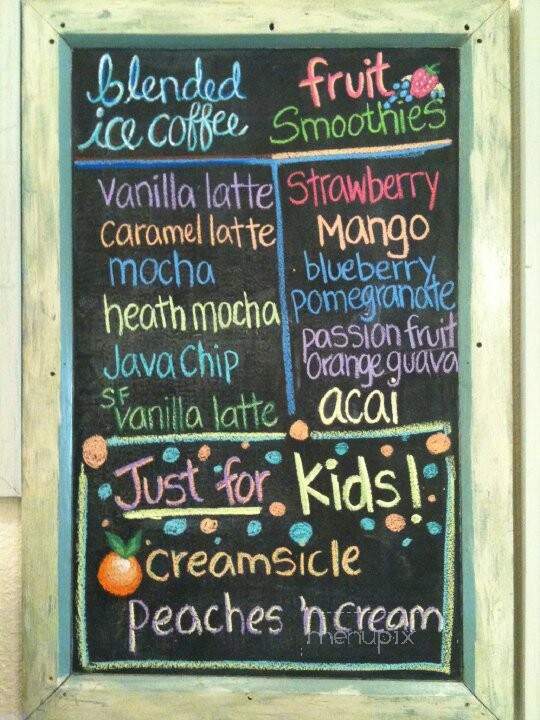 blended
ice coffee
vanilla latte
caramel latte
mocha
heath mocha
Java Chip
SF
vanilla latte
fruit
Smoothies
Strawberry
Mango
blueberry
pomegranate
passion fruit
orange guava
acai
Just for Kids!
creamsicle
peaches 'n cream
menupix